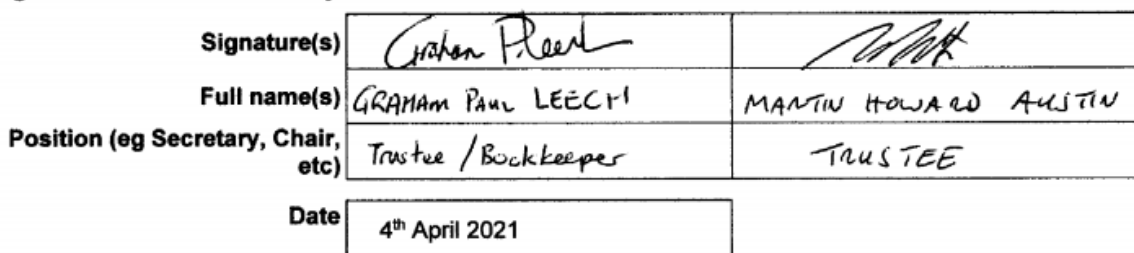 Signature(s) Graham P Leech
Full name(s) GRAHAM PAUL LEECH MARTIN HOWARD AUSTIN
Position (eg Secretary, Chair, etc) Trustee / Bookkeeper TRUSTEE
Date 4th April 2021